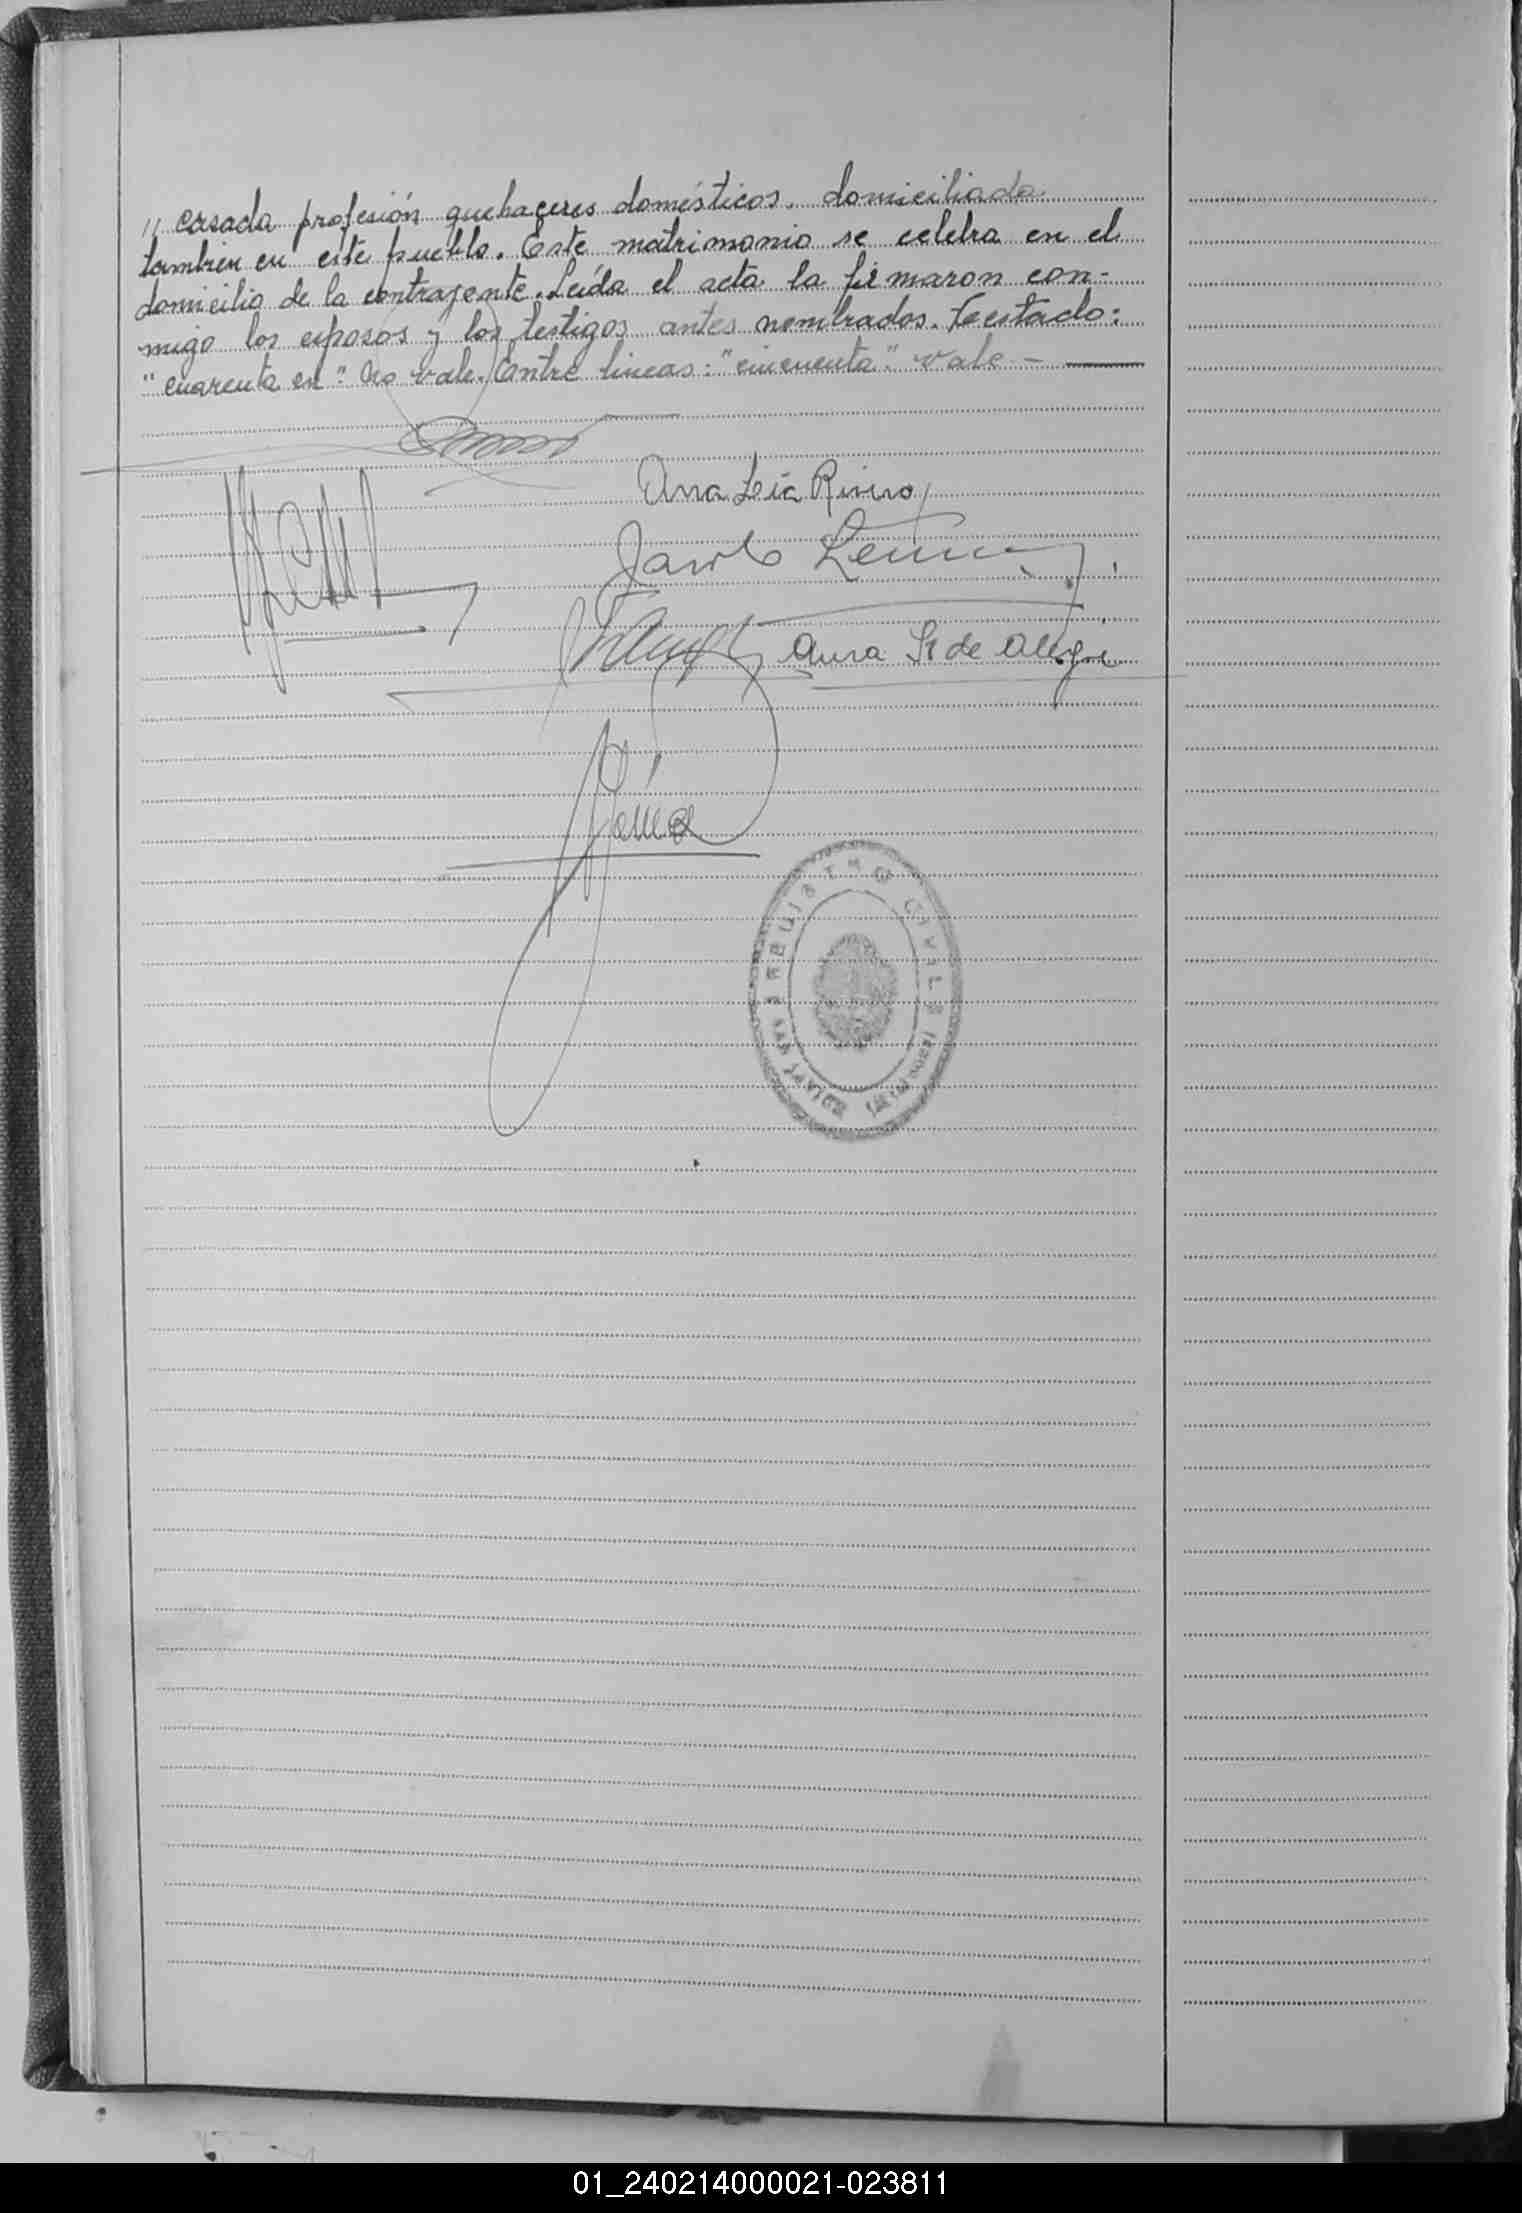 // casada profesión quehaceres domésticos, domiciliada
tambien en este pueblo. Este matrimonio se celebra en el
domicilio de la contrayente. Leída el acta la firmaron con-
migo los esposos y los testigos antes nombrados. Testado:
"cuarenta en". No vale. Entre lineas: "cincuenta". vale -
Ana Lía Rivero
Jacobo
Aura de Alegre
REGISTRO CIVIL
01_240214000021-023811